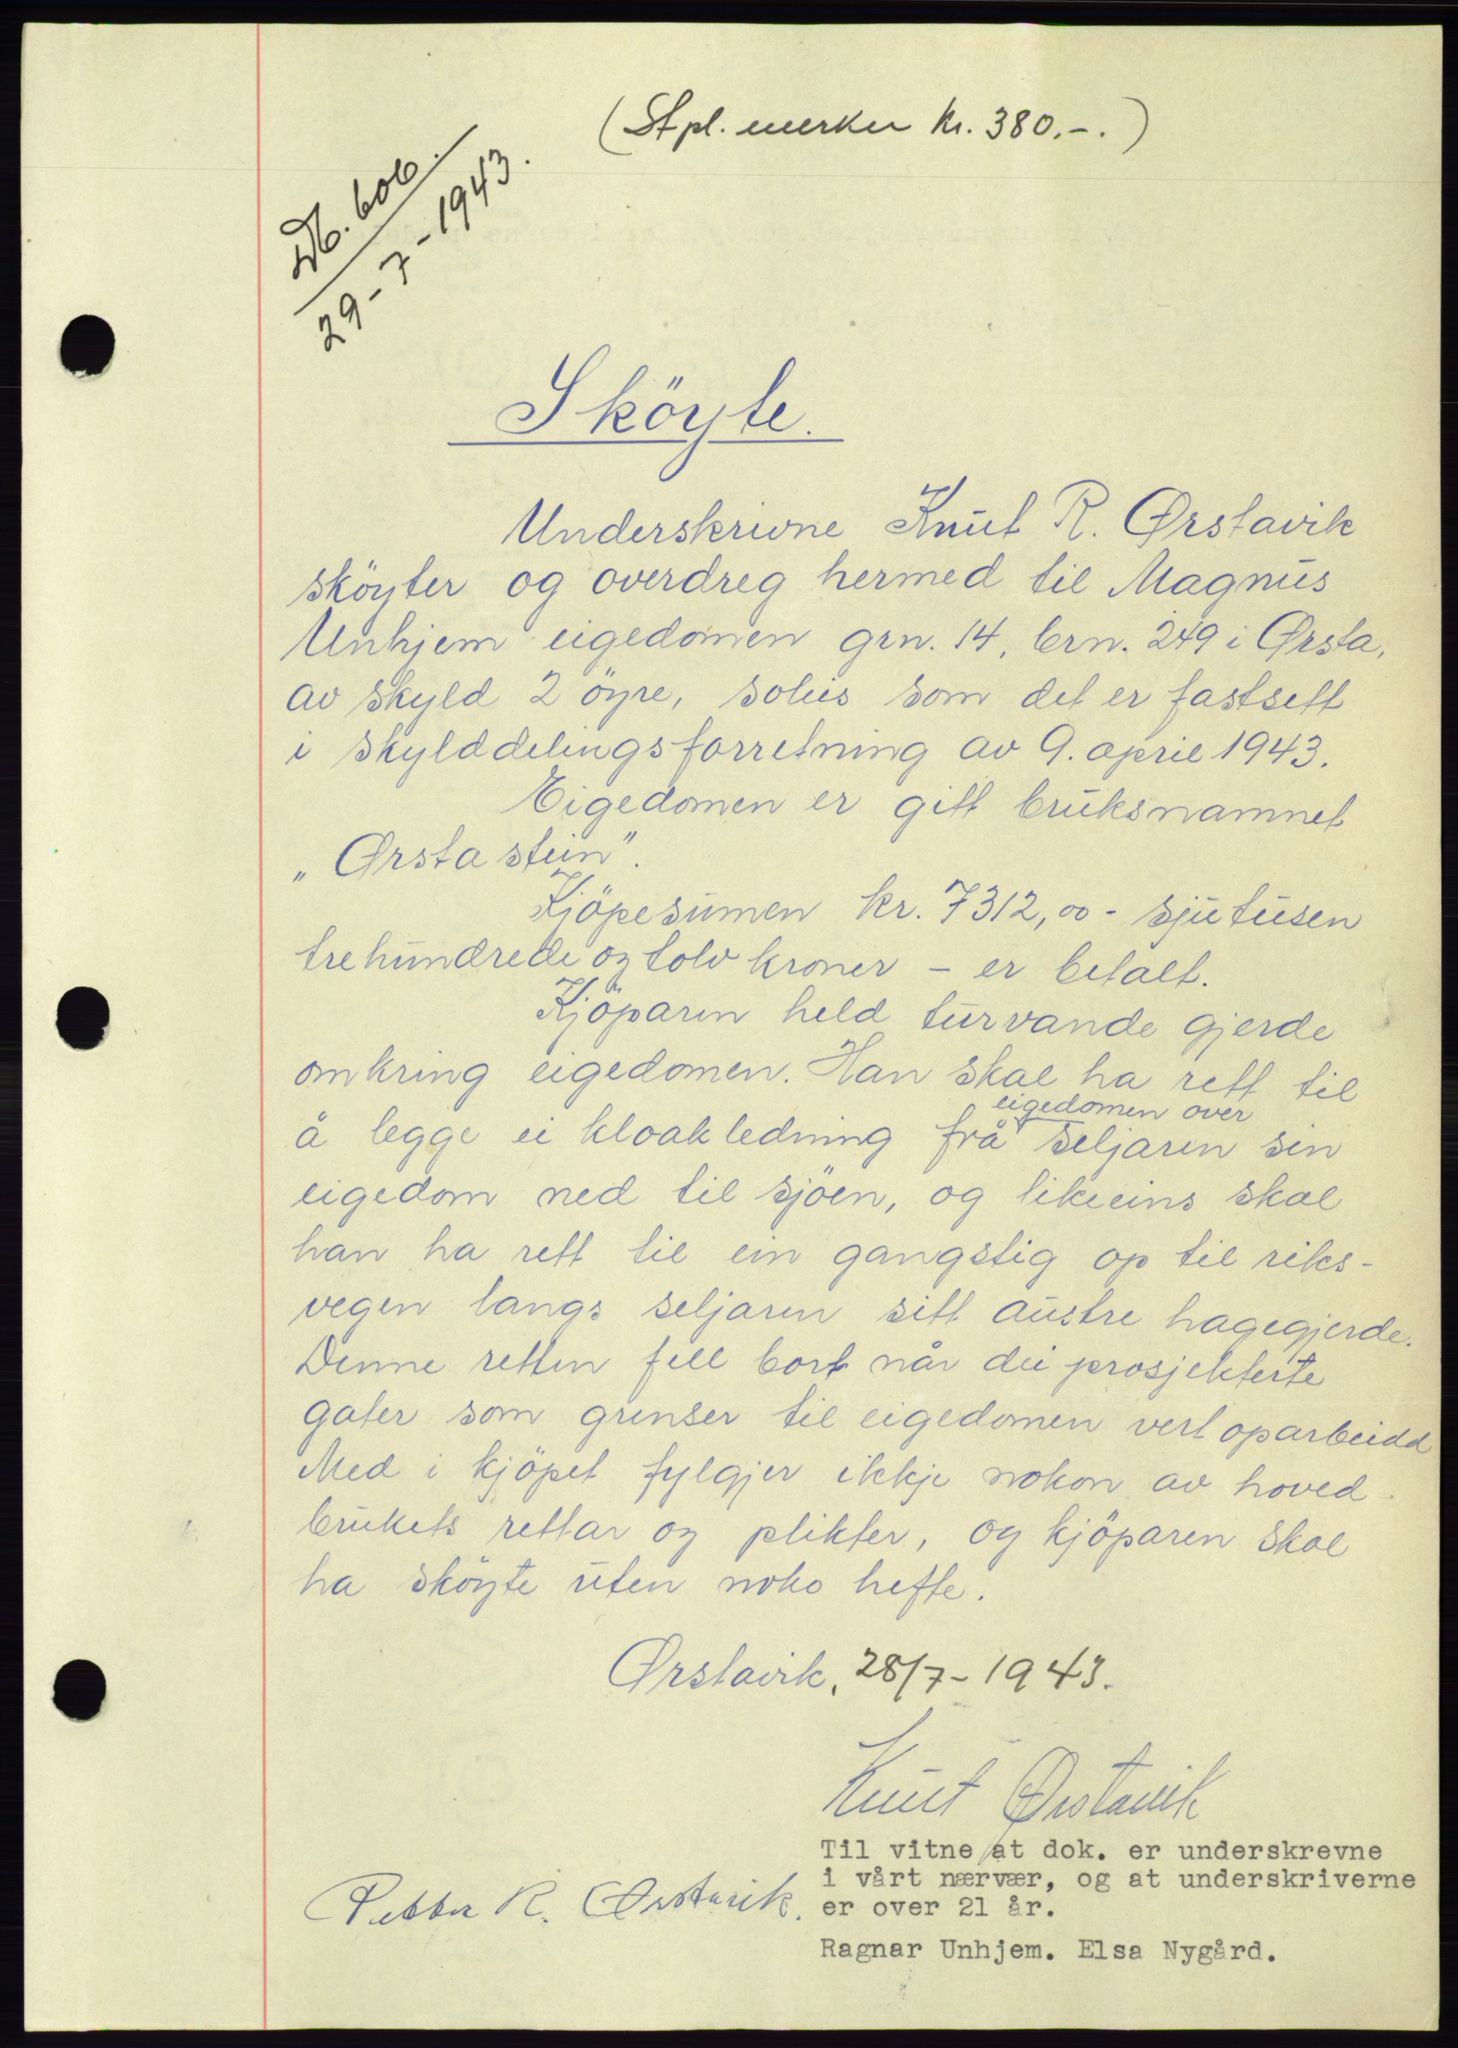 (Stpl. merker kr. 380.-.)
Db. 606.
29-7-1943.
Sköyte.
Underskrivne Knut R. Ørstavik
sköyter og overdreg hermed til Magnus
Unhjem eigedomen grn. 14, brn. 249 i Ørsta,
av skyld 2 öyre, soleis som det er fastsett
i skylddelingsforretning av 9. april 1943.
Eigedomen er gitt bruksnamnet
"Ørsta stein".
Kjöpesumen kr. 7312,00 - sjutusen
trehundrede og tolv kroner - er betalt.
Kjöparen held turvande gjerde
omkring eigedomen. Han skal ha rett til
eigedomen over
å legge ei kloakledning frå seljaren sin
eigedom ned til sjöen, og likeeins skal
han ha rett til ein gangstig op til riks-
vegen langs seljaren sitt austre hagegjerde.
Denne retten fell bort når dei prosjekterte
gater som grenser til eigedomen vert oparbeidd
Med i kjöpet fylgjer ikkje nokon av hoved-
brukets rettar og plikter, og kjöparen skal
ha sköyte uten noko hefte.
Ørstavik, 28/7-1943.
Knut Ørstavik
Til vitne at dok. er underskrevne
i vårt nærvær, og at underskriverne
er over 21 år.
Petter R. Ørstavik.
Ragnar Unhjem. Elsa Nygård.